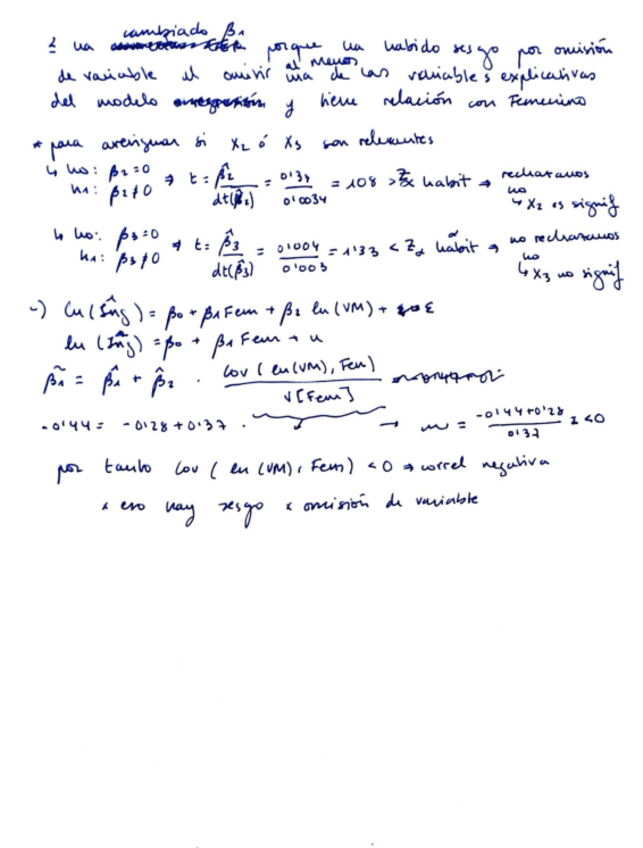 cambiado β1
2 ha porque ha habido sesgo por omisión
de variable al omitir al menos una de las variables explicativas
del modelo y tiene relación con Femenino
* para averiguar si X2 ó X3 son relevantes
↳ H0: β2=0 ⇒ t = β̂2 / dt(β̂2) = / 0'0034 = 108 > Zα habit ⇒ rechazamos
H1: β2≠0 H0
↳ X2 es signif
↳ H0: β3=0 ⇒ t = β̂3 / dt(β̂3) = 0'004 / 0'003 = 1'33 < Zα habit ⇒ no rechazamos
H1: β3≠0 H0
↳ X3 no signif
ln(Inĝ) = β0 + β1 Fem + β2 ln(VM) + ε
ln (Inĝ) = β0 + β1 Fem + u
β̃1 = β̂1 + β̂2 · cov ( ln(VM), Fem) / V[Fem]
-0'44 = -0'28 + 0'37 · → = -0'44+0'28 / 0'37 <0
por tanto cov ( ln (VM), Fem) < 0 ⇒ correl negativa
x eso hay sesgo x omisión de variable